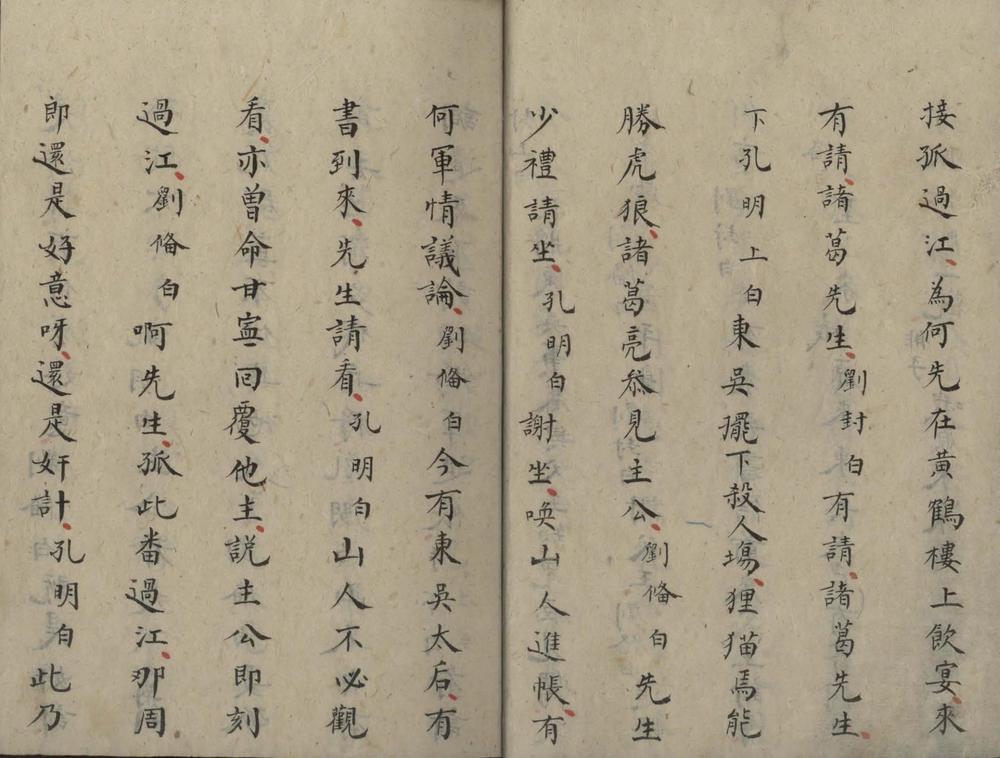 接孤過江、為何先在黃鶴樓上飲宴、來
有請、諸葛先生、劉封白有請、諸葛先生、
下孔明上白東吳擺下殺人塲、狸猫焉能
勝虎狼、諸葛亮叅見主公、劉俻白先生
少禮請坐、孔明白謝坐、喚山人進帳、有
何軍情議論、劉俻白今有東吳太后、有
書到來、先生請看、孔明白山人不必觀
看、亦曽命甘寍回覆他主、説主公即刻
過江、劉俻白啊先生、孤此畨過江、那周
郎還是好意呀、還是奸計、孔明白此乃